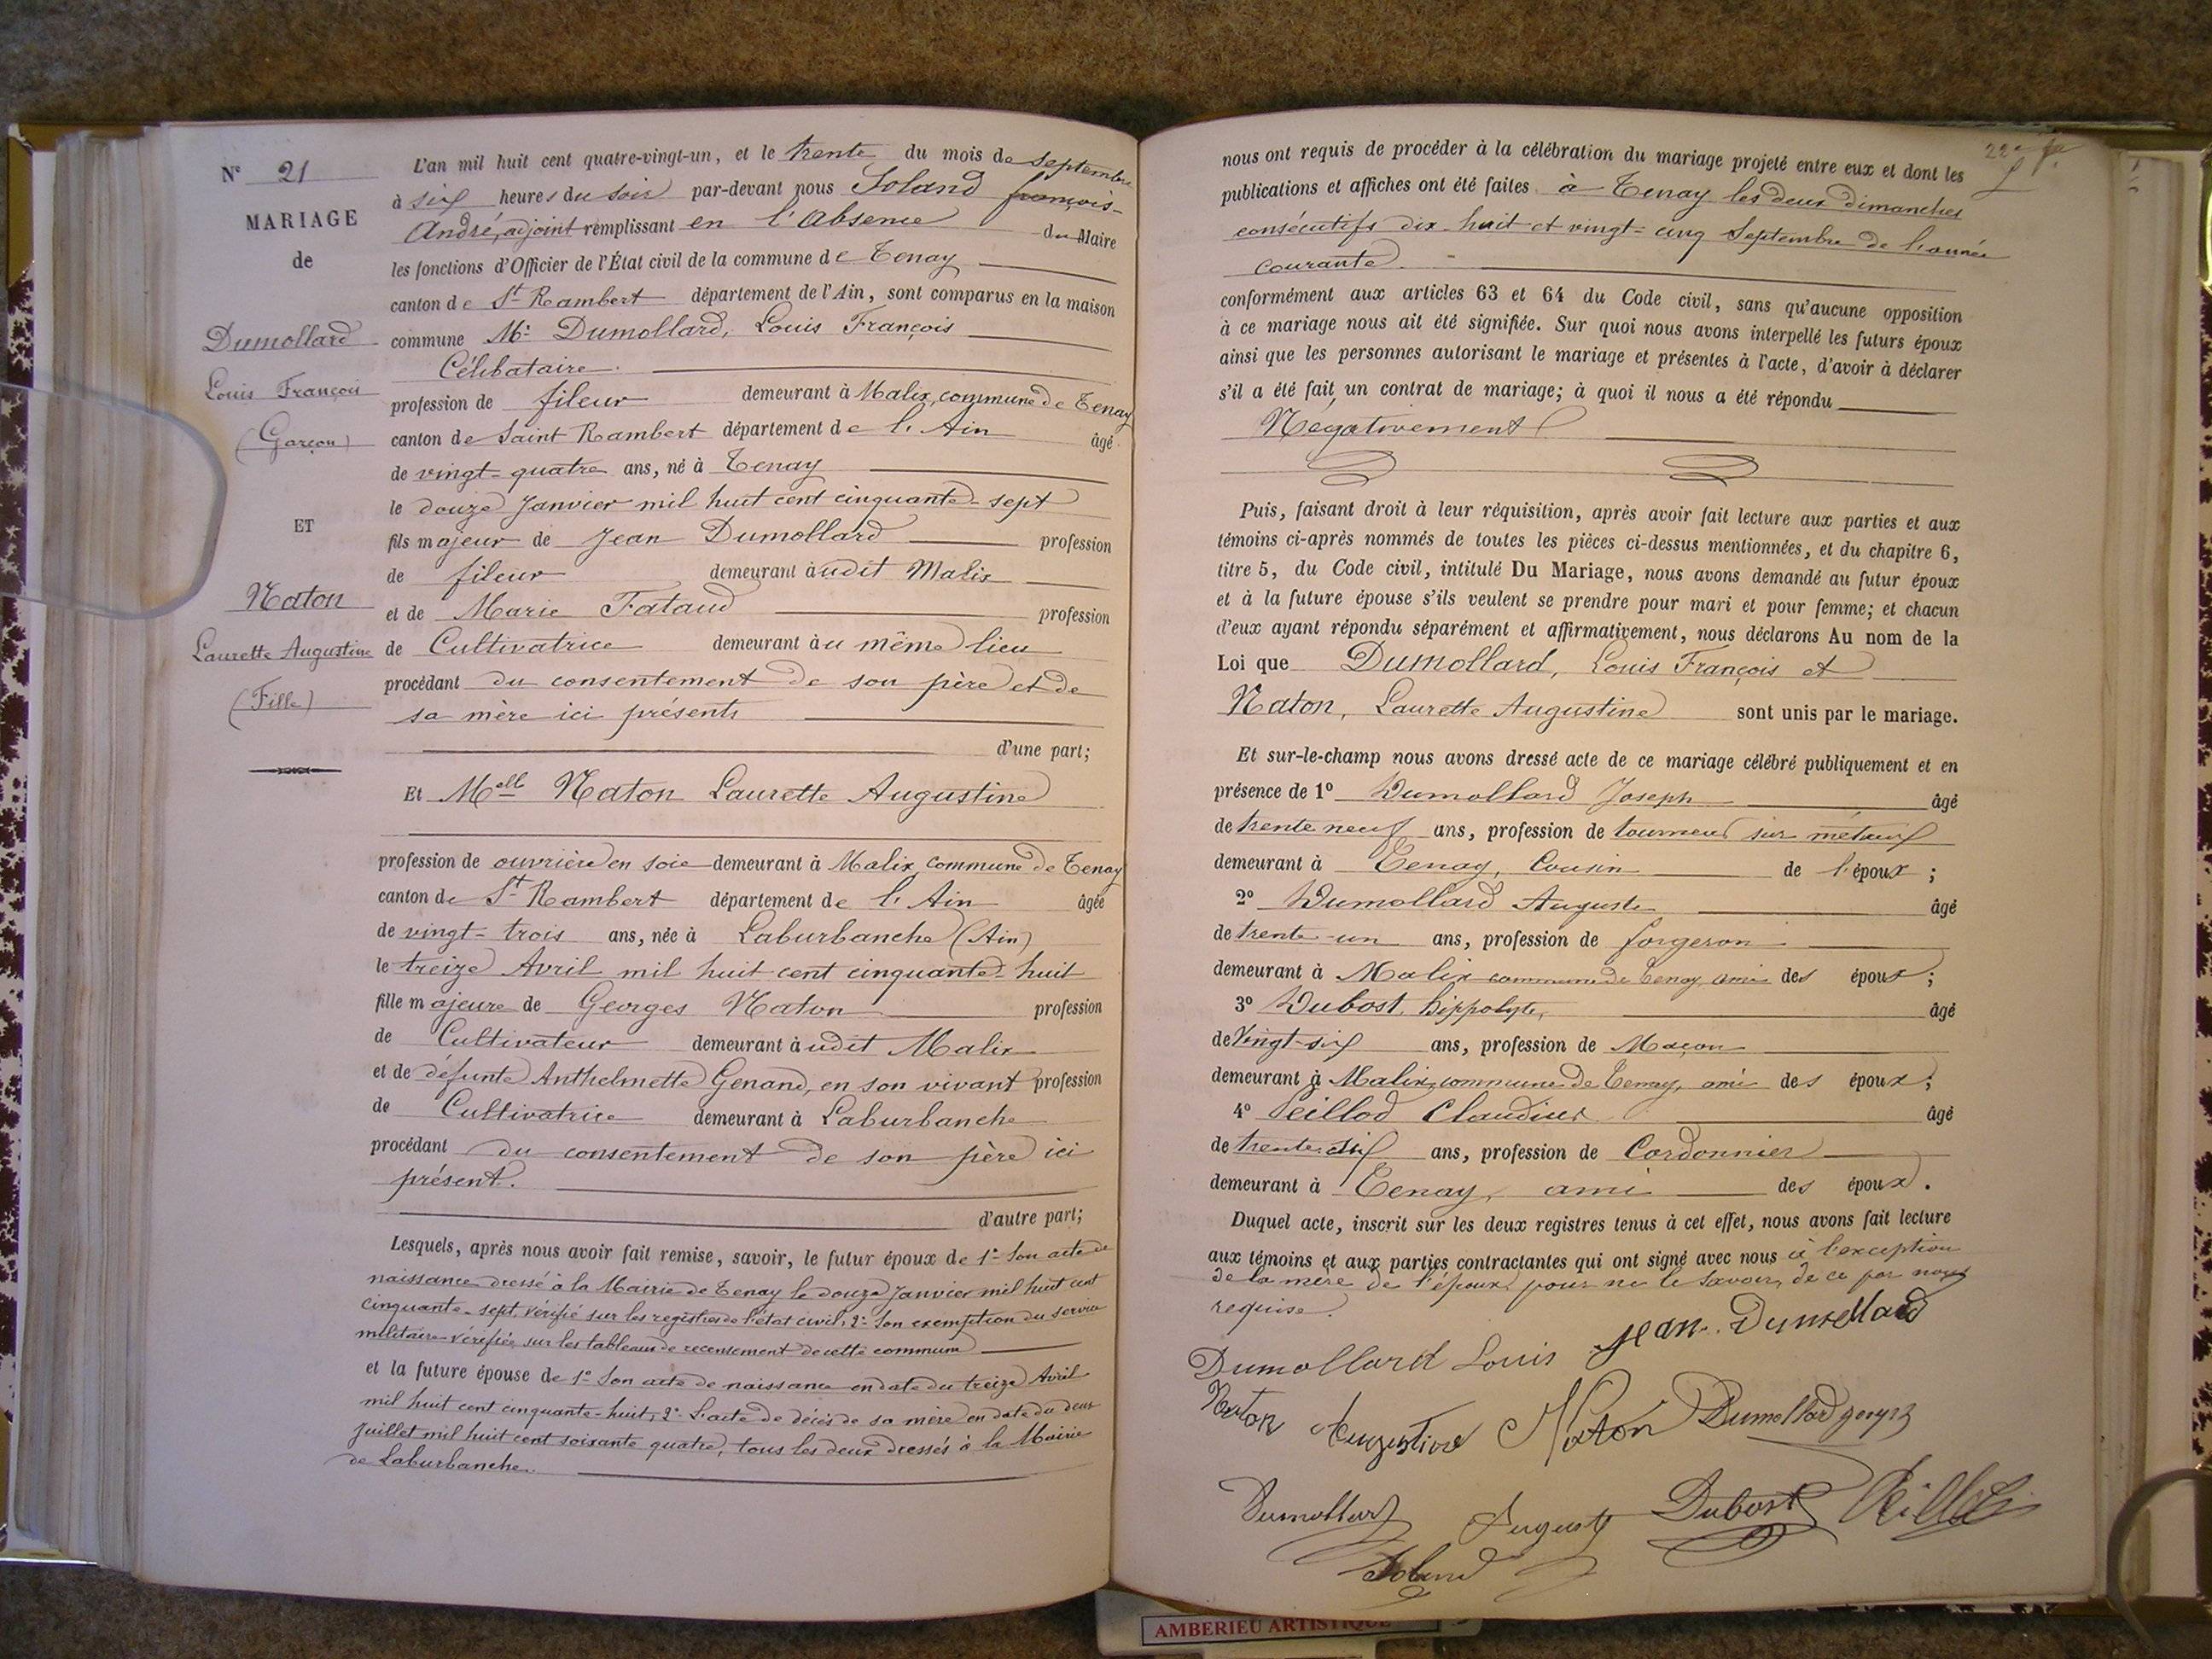 N° 21
MARIAGE
de
Dumollard
Louis François
(Garçon)
ET
Naton
Laurette Augustine
(Fille)
L'an mil huit cent quatre-vingt-un, et le trente du mois de septembre
à six heures du soir par-devant nous Soland françois-
André, adjoint remplissant en l'absence du Maire
les fonctions d'Officier de l'État civil de la commune de Tenay
canton de St Rambert département de l'Ain, sont comparus en la maison
commune Mr Dumollard, Louis François
Célibataire.
profession de fileur demeurant à Malix, commune de Tenay
canton de Saint Rambert département de l'Ain âgé
de vingt-quatre ans, né à Tenay
le douze Janvier mil huit cent cinquante-sept
fils majeur de Jean Dumollard profession
de fileur demeurant audit Malix
et de Marie Fataud profession
de Cultivatrice demeurant au même lieu
procédant du consentement de son père et de
sa mère ici présents
d'une part;
Et Melle Naton Laurette Augustine
profession de ouvrière en soie demeurant à Malix, commune de Tenay
canton de St Rambert département de l'Ain âgée
de vingt-trois ans, née à Laburbanche (Ain)
le treize Avril mil huit cent cinquante-huit
fille majeure de Georges Naton profession
de Cultivateur demeurant audit Malix
et de défunte Anthelmette Genand, en son vivant profession
de Cultivatrice demeurant à Laburbanche
procédant du consentement de son père ici
présent.
d'autre part;
Lesquels, après nous avoir fait remise, savoir, le futur époux de 1° Son acte de
naissance dressé à la Mairie de Tenay le douze Janvier mil huit cent
cinquante-sept, vérifié sur les registres de l'état civil, 2° Son exemption du service
militaire vérifiée sur les tableaux de recensement de cette commune
et la future épouse de 1° Son acte de naissance en date du treize Avril
mil huit cent cinquante-huit, 2° L'acte de décès de sa mère en date du deux
Juillet mil huit cent soixante quatre, tous les deux dressés à la Mairie
de Laburbanche.
nous ont requis de procéder à la célébration du mariage projeté entre eux et dont les
publications et affiches ont été faites à Tenay les deux dimanches
consécutifs dix-huit et vingt-cinq Septembre de l'année
courante.
conformément aux articles 63 et 64 du Code civil, sans qu'aucune opposition
à ce mariage nous ait été signifiée. Sur quoi nous avons interpellé les futurs époux
ainsi que les personnes autorisant le mariage et présentes à l'acte, d'avoir à déclarer
s'il a été fait un contrat de mariage; à quoi il nous a été répondu
Négativement
Puis, faisant droit à leur réquisition, après avoir fait lecture aux parties et aux
témoins ci-après nommés de toutes les pièces ci-dessus mentionnées, et du chapitre 6,
titre 5, du Code civil, intitulé Du Mariage, nous avons demandé au futur époux
et à la future épouse s'ils veulent se prendre pour mari et pour femme; et chacun
d'eux ayant répondu séparément et affirmativement, nous déclarons Au nom de la
Loi que Dumollard, Louis François et
Naton, Laurette Augustine sont unis par le mariage.
Et sur-le-champ nous avons dressé acte de ce mariage célébré publiquement et en
présence de 1° Dumollard Joseph âgé
de trente neuf ans, profession de tourneur sur métaux
demeurant à Tenay, Cousin de l'époux;
2° Dumollard Auguste âgé
de trente-un ans, profession de forgeron
demeurant à Malix commune de Tenay, ami des époux;
3° Dubost, hippolyte, âgé
de Vingt-six ans, profession de Maçon
demeurant à Malix, commune de Tenay, ami des époux;
4° Peillod Claudius âgé
de trente six ans, profession de Cordonnier
demeurant à Tenay, ami des époux.
Duquel acte, inscrit sur les deux registres tenus à cet effet, nous avons fait lecture
aux témoins et aux parties contractantes qui ont signé avec nous à l'exception
de la mère de l'époux pour ne le savoir, de ce par nous
requise.
Dumollard Louis Jean Dumollard
Naton Augustine Naton Dumollard
Dumollard Auguste Dubost
Soland
AMBERIEU ARTISTIQUE